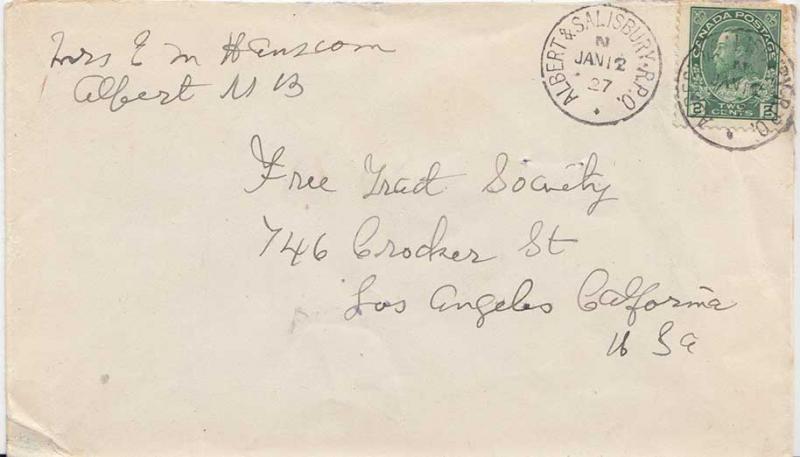 Mrs E M Hanscom
Albert N B
ALBERT & SALISBURY. R.P.O.
N
JAN 12
27
CANADA POSTAGE
2 TWO CENTS 2
Free Tract Society
746 Crocker St
Los Angeles California
U S a